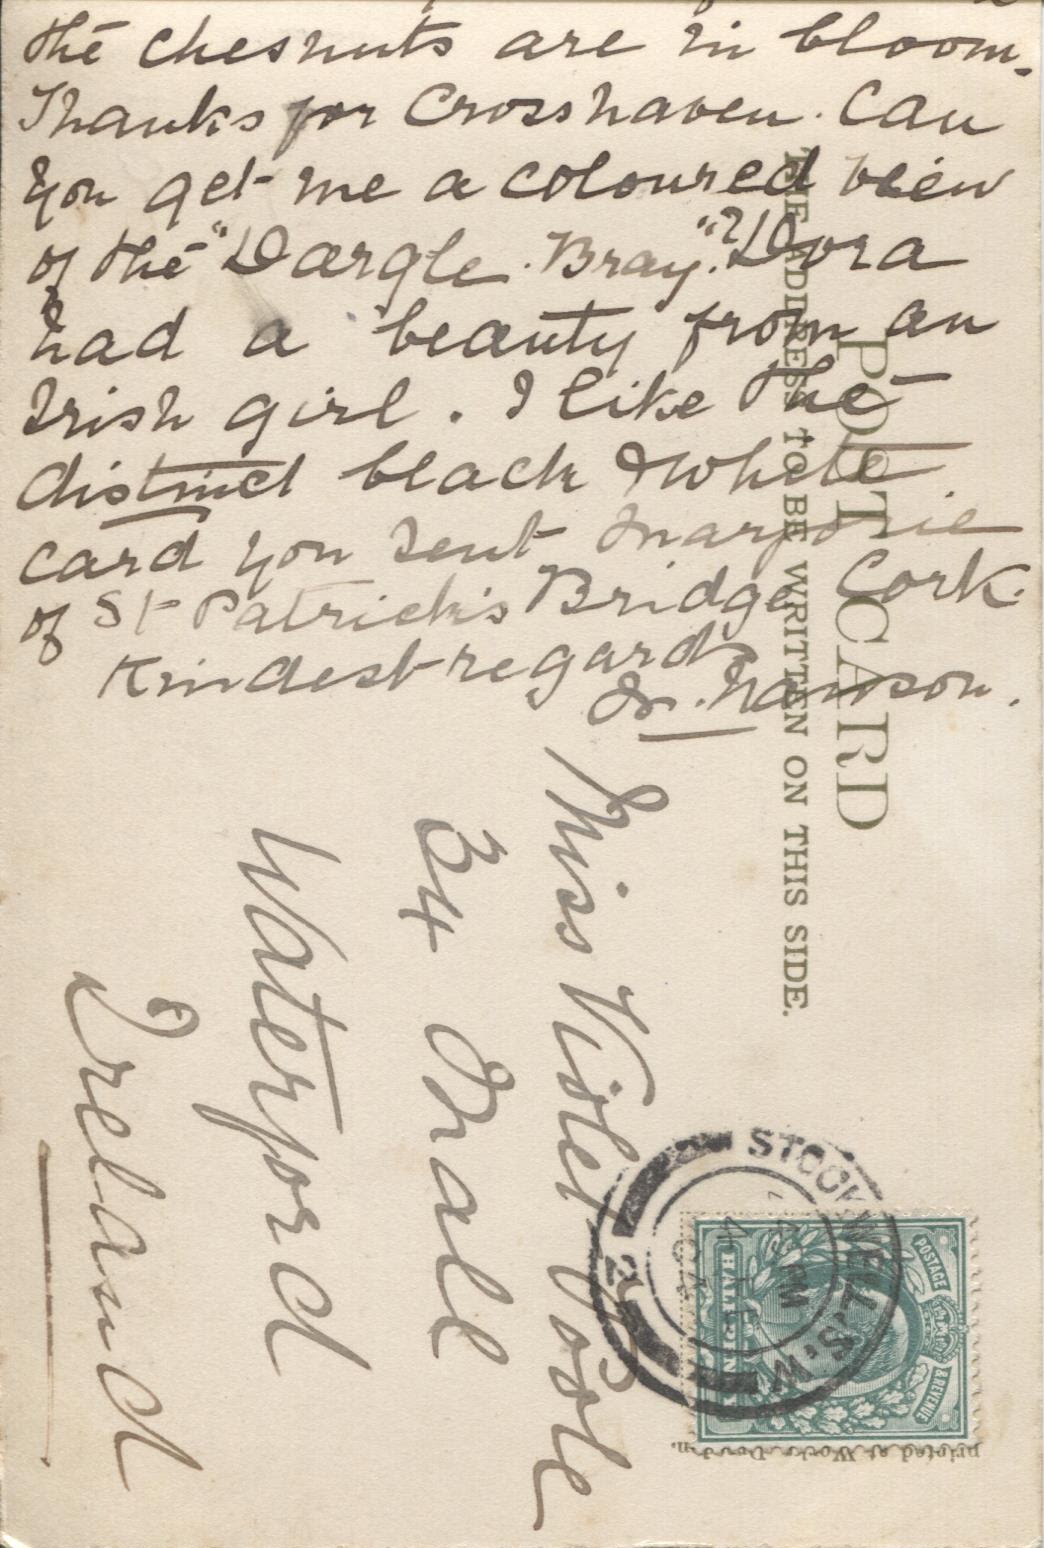 the chesnuts are in bloom.
Thanks for Crosshaven. Can
you get me a coloured view
of the "Dargle. Bray"? Dora
had a beauty from an
Irish girl. I like the
distinct black & white
card you sent Marjorie
of St Patrick's Bridge Cork.
Kindest regards
POST CARD
THE ADDRESS TO BE WRITTEN ON THIS SIDE.
Miss Violet Poole
34 Mall
Waterford
Ireland
STOCKWELL, S.W.
2
POSTAGE
& REVENUE
HALFPENNY
printed at Works